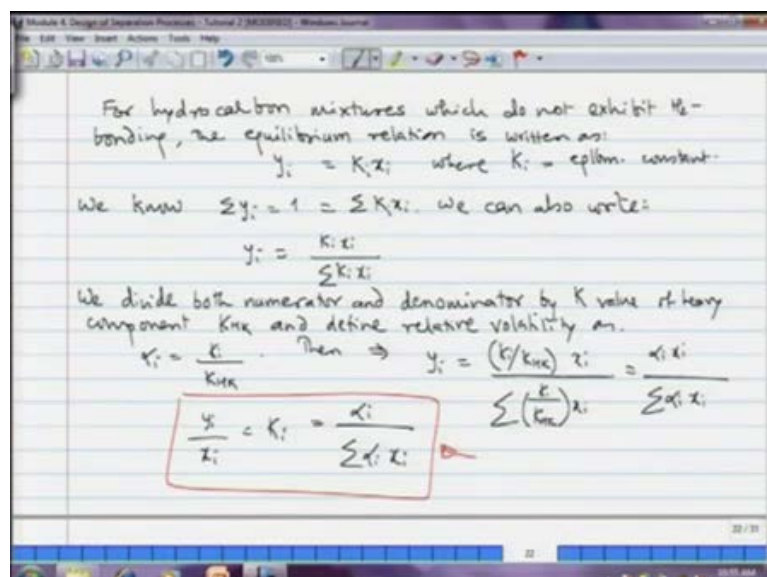 Module 4. Design of Separation Processes - Tutorial 2 [MODIFIED] - Windows Journal
File Edit View Insert Actions Tools Help
For hydrocarbon mixtures which do not exhibit H2-
bonding, the equilibrium relation is written as:
yi = Ki xi where Ki = eqlbm. constant.
We know Σyi = 1 = ΣKi xi. We can also write:
yi = Ki xi / ΣKi xi
We divide both numerator and denominator by K value of heavy
component KHK and define relative volatility as.
αi = Ki / KHK . Then ⇒ yi = (Ki/KHK) xi / Σ(Ki/KHK) xi = αi xi / Σαi xi
yi / xi = Ki = αi / Σαi xi
22 / 31
22
10:55 AM